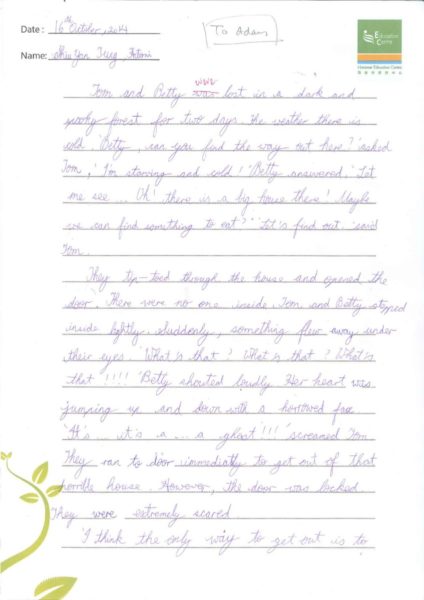 To Adam
Education Centre
Date: 16th October, 2014
Name: Shiu Yan Tung
Tom and Betty was were lost in a dark and
spooky forest for two days. The weather there is
cold. 'Betty, can you find the way out here?' asked
Tom, 'I'm starving and cold!' 'Betty answered,' 'Let
me see... Oh! there is a big house there! Maybe
we can find something to eat?' 'Let's find out.' said
Tom.
They tip-toed through the house and opened the
door. There were no one inside. Tom and Betty stepped
inside lightly. Suddenly, something flew away under
their eyes. 'What is that? What is that? What is
that!!!!' Betty shouted loudly. Her heart was
jumping up and down with a horrowed face.
'It's... it's a ... a ghost!!!' screamed Tom.
They ran to door immediatly to get out of that
horrible house. However, the door was locked.
They were extremely scared.
'I think the only way to get out is to